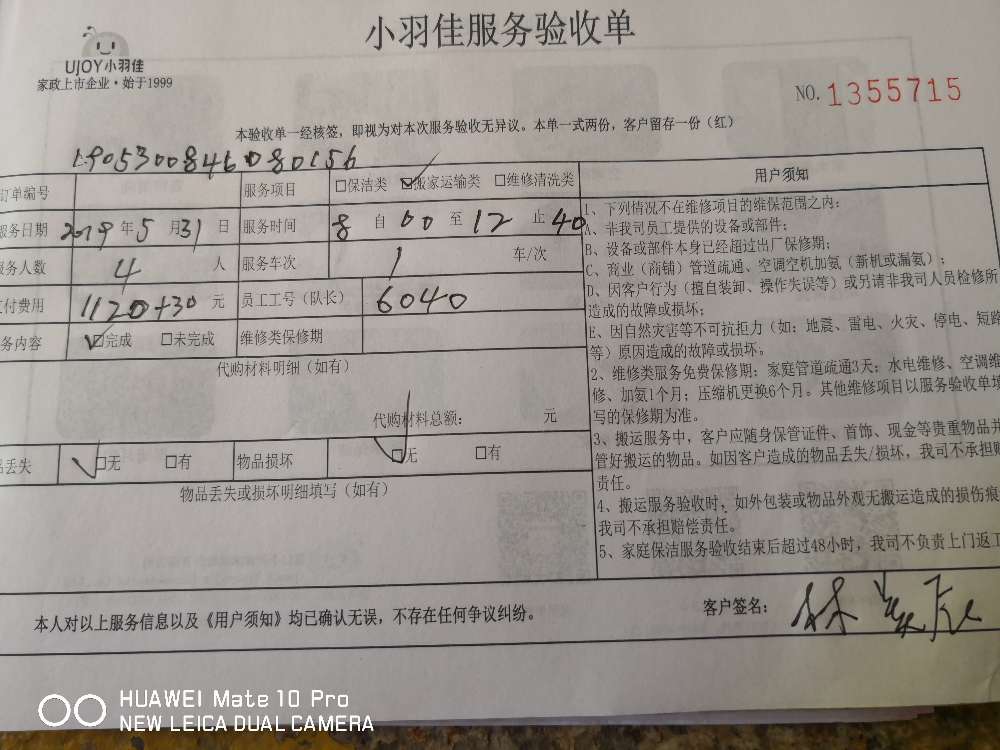 小羽佳服务验收单
UJOY小羽佳
家政上市企业·始于1999
NO. 1355715
本验收单一经核签，即视为对本次服务验收无异议。本单一式两份，客户留存一份（红）
订单编号
服务项目 □保洁类 ☑搬家运输类 □维修清洗类
服务日期 2019年5月31日 服务时间 8自00至12止40
服务人数 4人 服务车次 1 车/次
支付费用 1120+30元 员工工号（队长） 6040
服务内容 ☑完成 □未完成 维修类保修期
代购材料明细（如有）
代购材料总额： 元
品丢失 ☑无 □有 物品损坏 ☑无 □有
物品丢失或损坏明细填写（如有）
用户须知
1、下列情况不在维修项目的维保范围之内：
A、非我司员工提供的设备或部件；
B、设备或部件本身已经超过出厂保修期；
C、商业（商铺）管道疏通、空调空机加氨（新机或漏氨）；
D、因客户行为（擅自装卸、操作失误等）或另请非我司人员检修所
造成的故障或损坏；
E、因自然灾害等不可抗拒力（如：地震、雷电、火灾、停电、短路
等）原因造成的故障或损坏。
2、维修类服务免费保修期：家庭管道疏通3天；水电维修、空调维
修、加氨1个月；压缩机更换6个月。其他维修项目以服务验收单填
写的保修期为准。
3、搬运服务中，客户应随身保管证件、首饰、现金等贵重物品并
管好搬运的物品。如因客户造成的物品丢失/损坏，我司不承担赔
责任。
4、搬运服务验收时，如外包装或物品外观无搬运造成的损伤痕
我司不承担赔偿责任。
5、家庭保洁服务验收结束后超过48小时，我司不负责上门返工
本人对以上服务信息以及《用户须知》均已确认无误，不存在任何争议纠纷。
客户签名：
HUAWEI Mate 10 Pro
NEW LEICA DUAL CAMERA